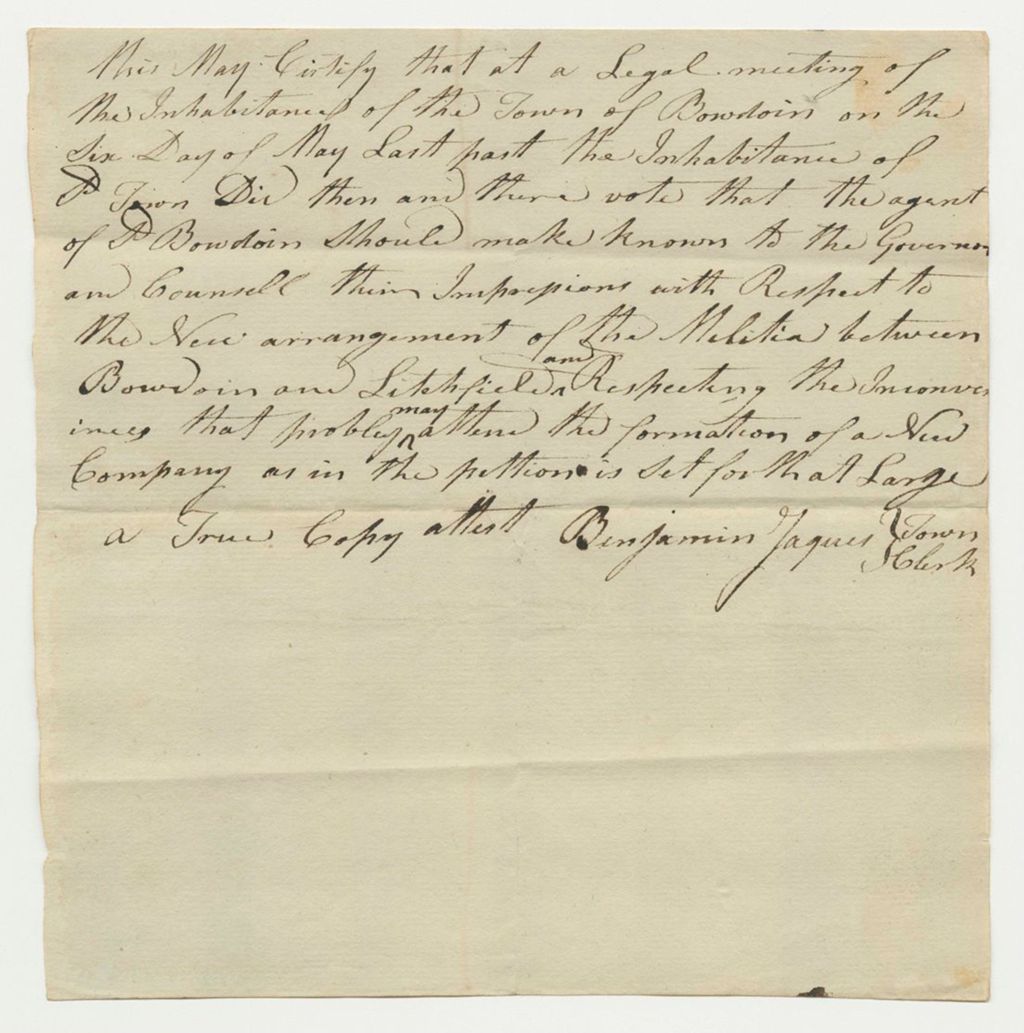 this May Certify that at a Legal meeting of
the Inhabitance of the Town of Bowdoin on the
Six Day of May Last past the Inhabitance of
sd Town Did then and there vote that the agent
of sd Bowdoin Should make known to the Governor
and Counsell their Impressions with Respect to
the New arrangement of the Militia between
Bowdoin and Litchfield and Respecting the Inconven
inces that probley may attend the formation of a New
Company as in the pettion is Set forth at Large
a True Copy attest Benjamin Jaques } Town
Clerk